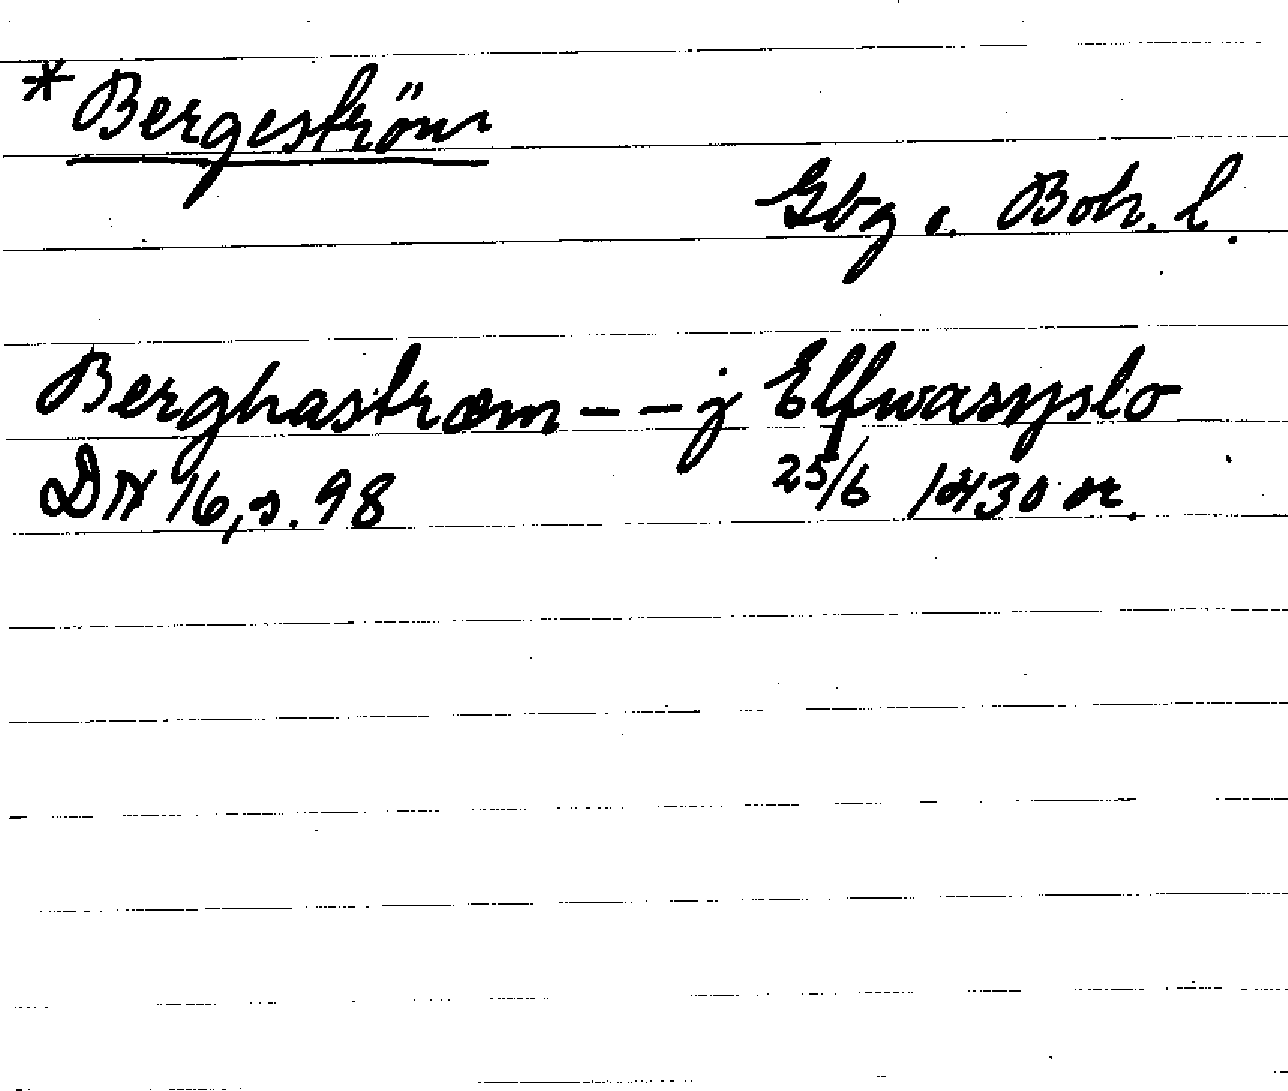 *Bergeström
Gbg o. Boh. l.
Berghastrœm - - j Elfwasyslo
DN 16, s. 98 25/6 1430 or.